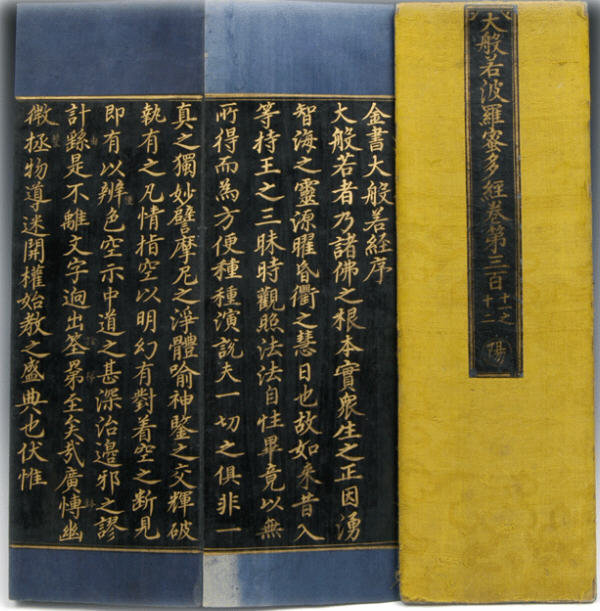 大般若波羅蜜多經卷第三百十一之十二
陽
金書大般若經序
大般若者乃諸佛之根本實衆生之正因湧
智海之靈源曜昏衢之慧日也故如来昔入
等持王之三昧時觀照法法自性畢竟以無
所得而為方便種種演說夫一切之俱非一
真之獨妙譬摩尼之浮體喻神鑒之交輝破
執有之凡情指空以明幻有對着空之断見
即有以辨色空示中道之甚深治邊邪之謬
計繇是不離文字迥出筌罤至矣哉廣慱幽
微拯物導迷開權始教之盛典也伏惟